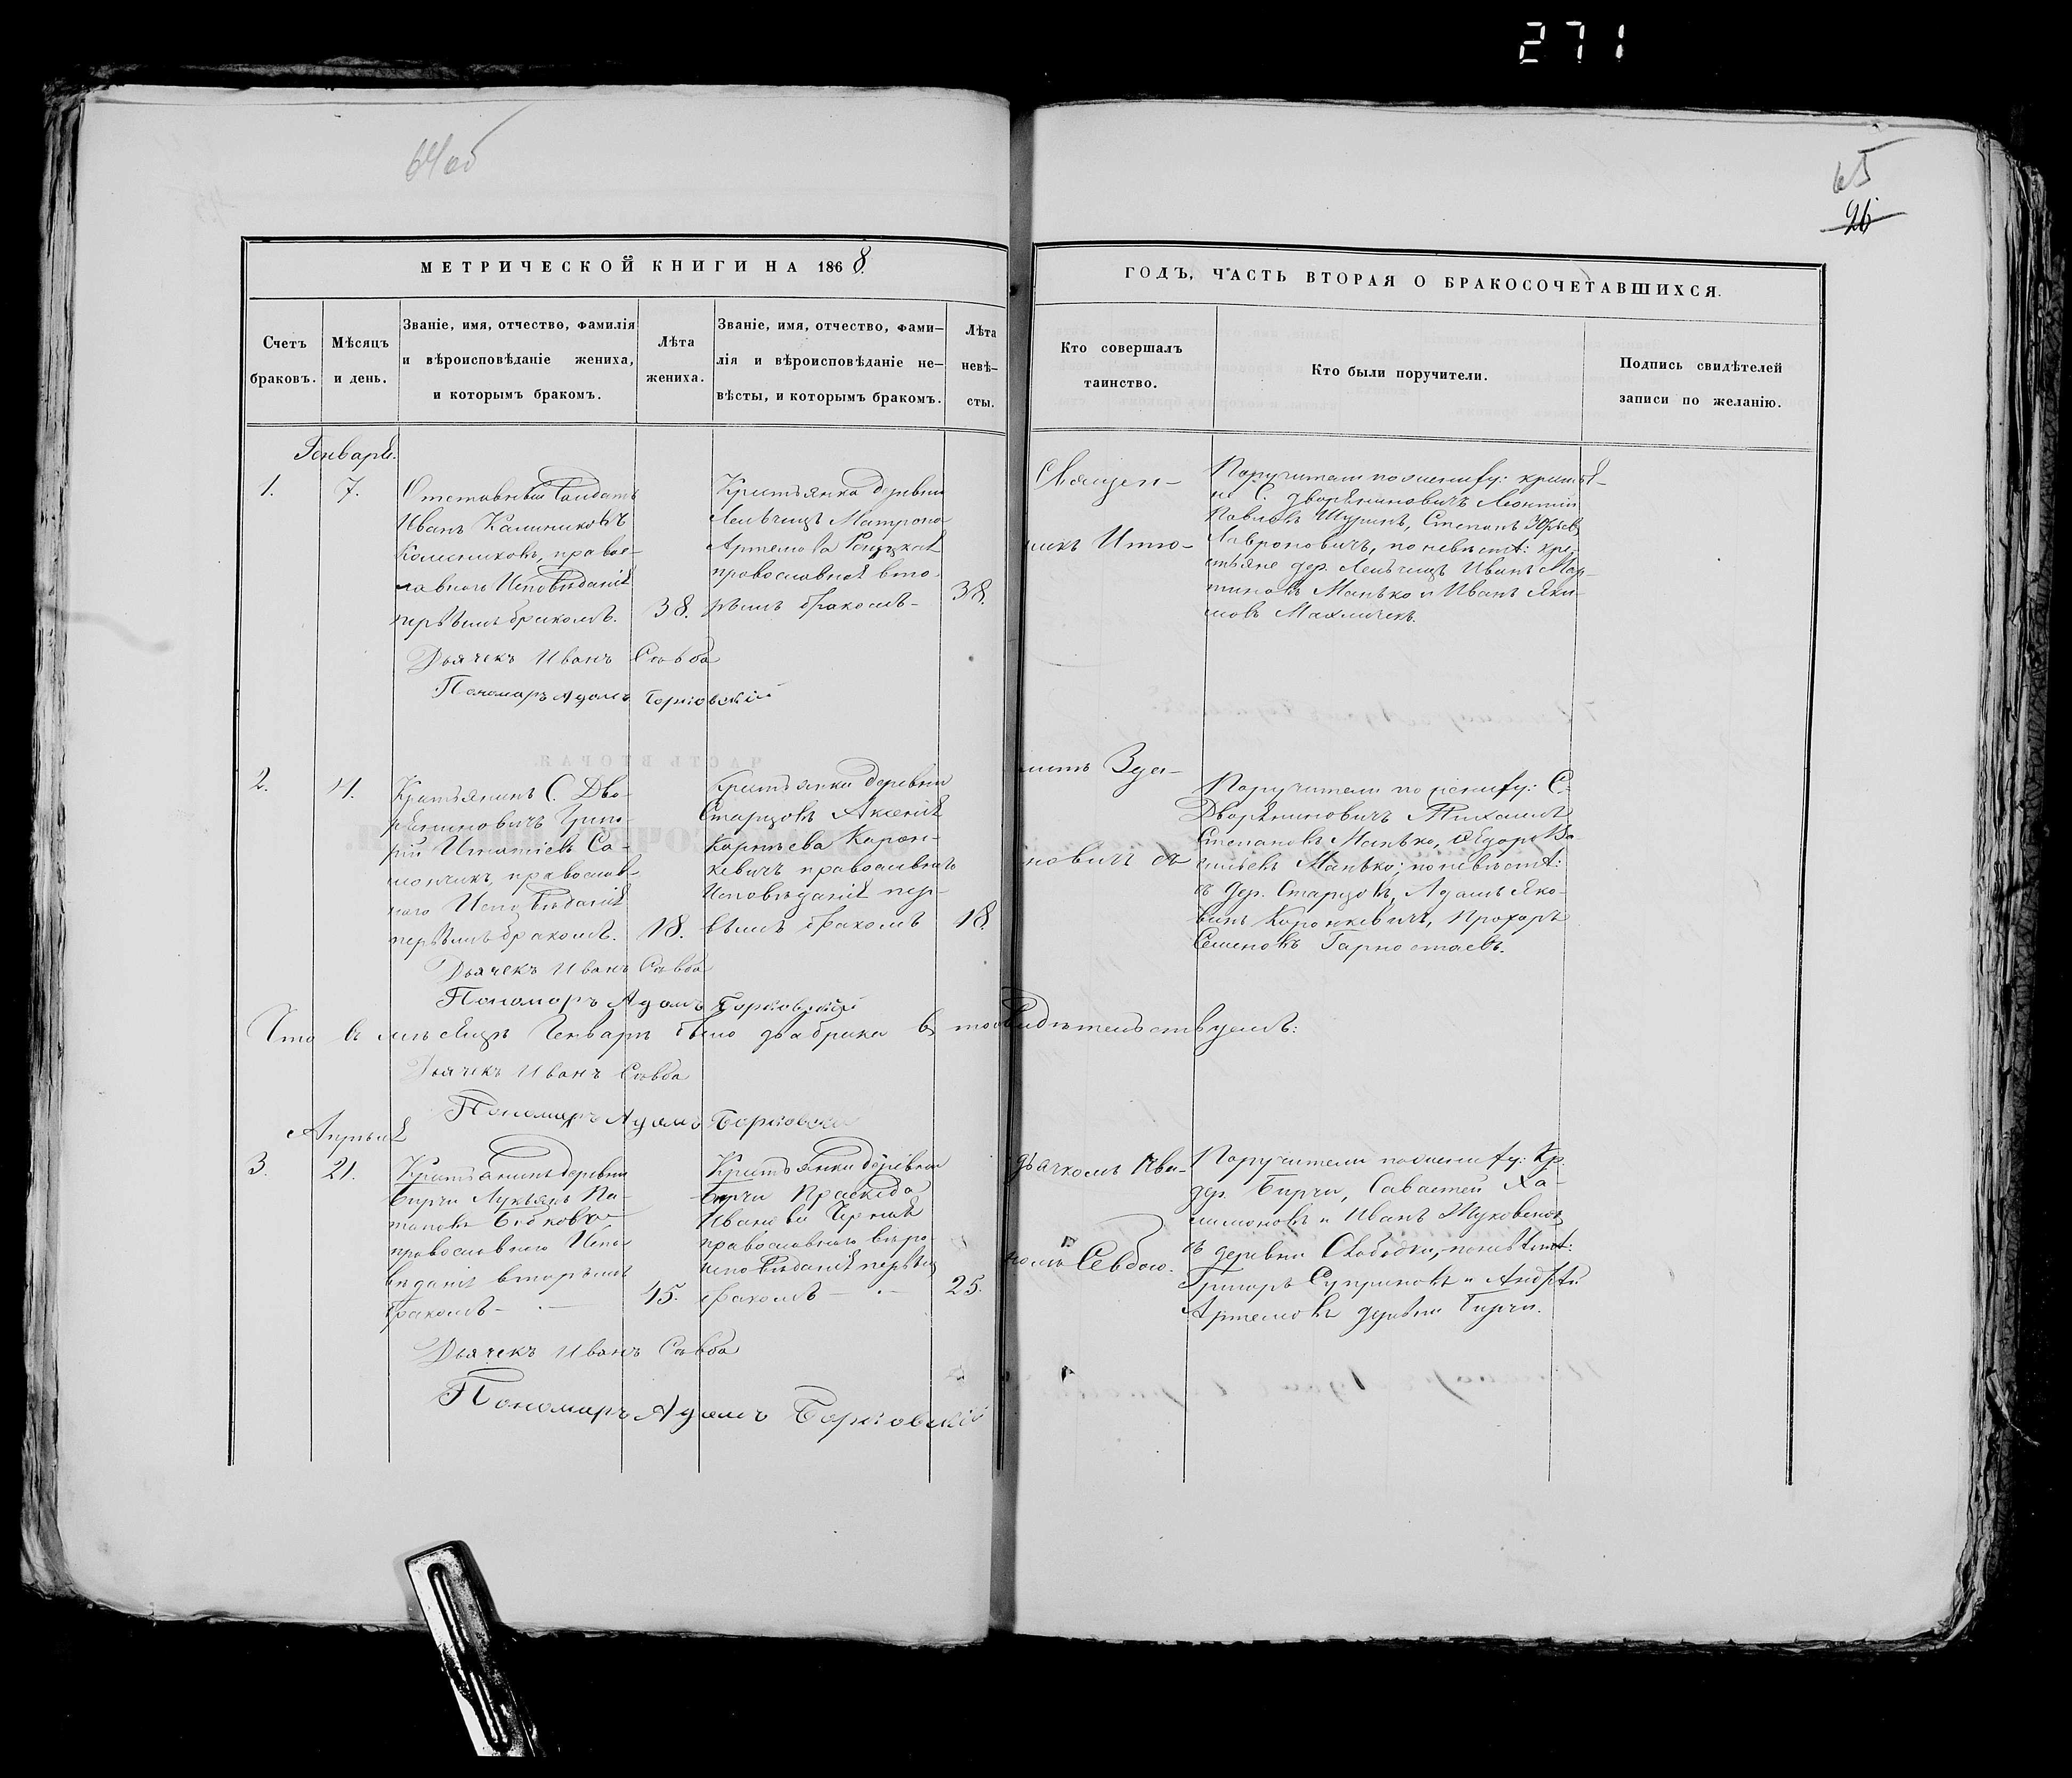 271
64об
65
26
МЕТРИЧЕСКОЙ КНИГИ НА 1868
ГОДЪ, ЧАСТЬ ВТОРАЯ О БРАКОСОЧЕТАВШИХСЯ.
Счетъ
браковъ.
Мѣсяцъ
и день.
Званіе, имя, отчество, фамилія
и вѣроисповѣданіе жениха,
и которымъ бракомъ.
Лѣта
жениха.
Званіе, имя, отчество, фами-
лія и вѣроисповѣданіе не-
вѣсты, и которымъ бракомъ.
Лѣта
невѣ-
сты.
Кто совершалъ
таинство.
Кто были поручители.
Подпись свидѣтелей
записи по желанію.
Генваря.
1.
7.
Отставный Солдатъ
Иванъ Калиниковъ
Колесниковъ, правос-
лавнаго Исповѣданія
первымъ бракомъ.
38.
Крестьянка деревни
Лельчицъ Матрона
Артемова
православная вто-
рымъ бракомъ-
38.
Священ-
никъ Игна-
Поручители по жениху: кресть-
не С. Дворяниновичъ Леонтій
Павловъ Шуринъ, Степанъ Юрьевъ
Лавроновичъ, по невѣстѣ: кре-
стьяне дер. Лельчицъ Иванъ Мар-
тиновъ Манько и Иванъ Яки-
мовъ Махличекъ.
Дьячекъ Иванъ Савба
Пономарь Адамъ Борковскій
2.
Крестьянинъ С. Дво-
ряниновичъ Григо-
рій Игнатіевъ Са-
мончикъ, православ-
наго Исповѣданія
первымъ бракомъ.
18.
Крестьянка деревни
Старцовъ Аксенія
Карнѣева Карон-
кевичъ православнаго
Исповѣданія пер-
вымъ бракомъ
18.
новичъ съ
Поручители по жениху: С.
Дворяниновичъ Михаилъ
Степановъ Манько, Ѳедоръ Ва-
сильевъ Манько; по невѣстѣ:
съ дер. Старцовъ, Адамъ Яко-
винъ Каронкевичъ, Прохоръ
Семеновъ Гарностаевъ.
Дьячекъ Иванъ Савба
Пономарь Адамъ Борковскій
Что въ мѣсяцѣ Генварѣ было два брака въ томъ свидѣтельствуемъ:
Дьячекъ Иванъ Савба
Пономарь Адамъ Борковскій
Апрѣля
3.
21.
Крестьянинъ деревни
Бирчи Лукьянъ По-
таповъ
православнаго Испо-
вѣданія вторымъ
бракомъ-
45.
Крестьянка деревни
Бирчи Праскѣда
Иванова Черная
православнаго вѣро-
исповѣданія первымъ
бракомъ-
25.
дьячкомъ Ива-
номъ Севбою.
Поручители по жениху: Кр.
дер. Бирчи, Саватей Ха-
лимоновъ и Иванъ
съ деревни Слободки, по невѣстѣ:
Григоръ Супруновъ и Андрей
Артемовъ деревни Бирчи.
Дьячекъ Иванъ Савба
Пономарь Адамъ Борковскій